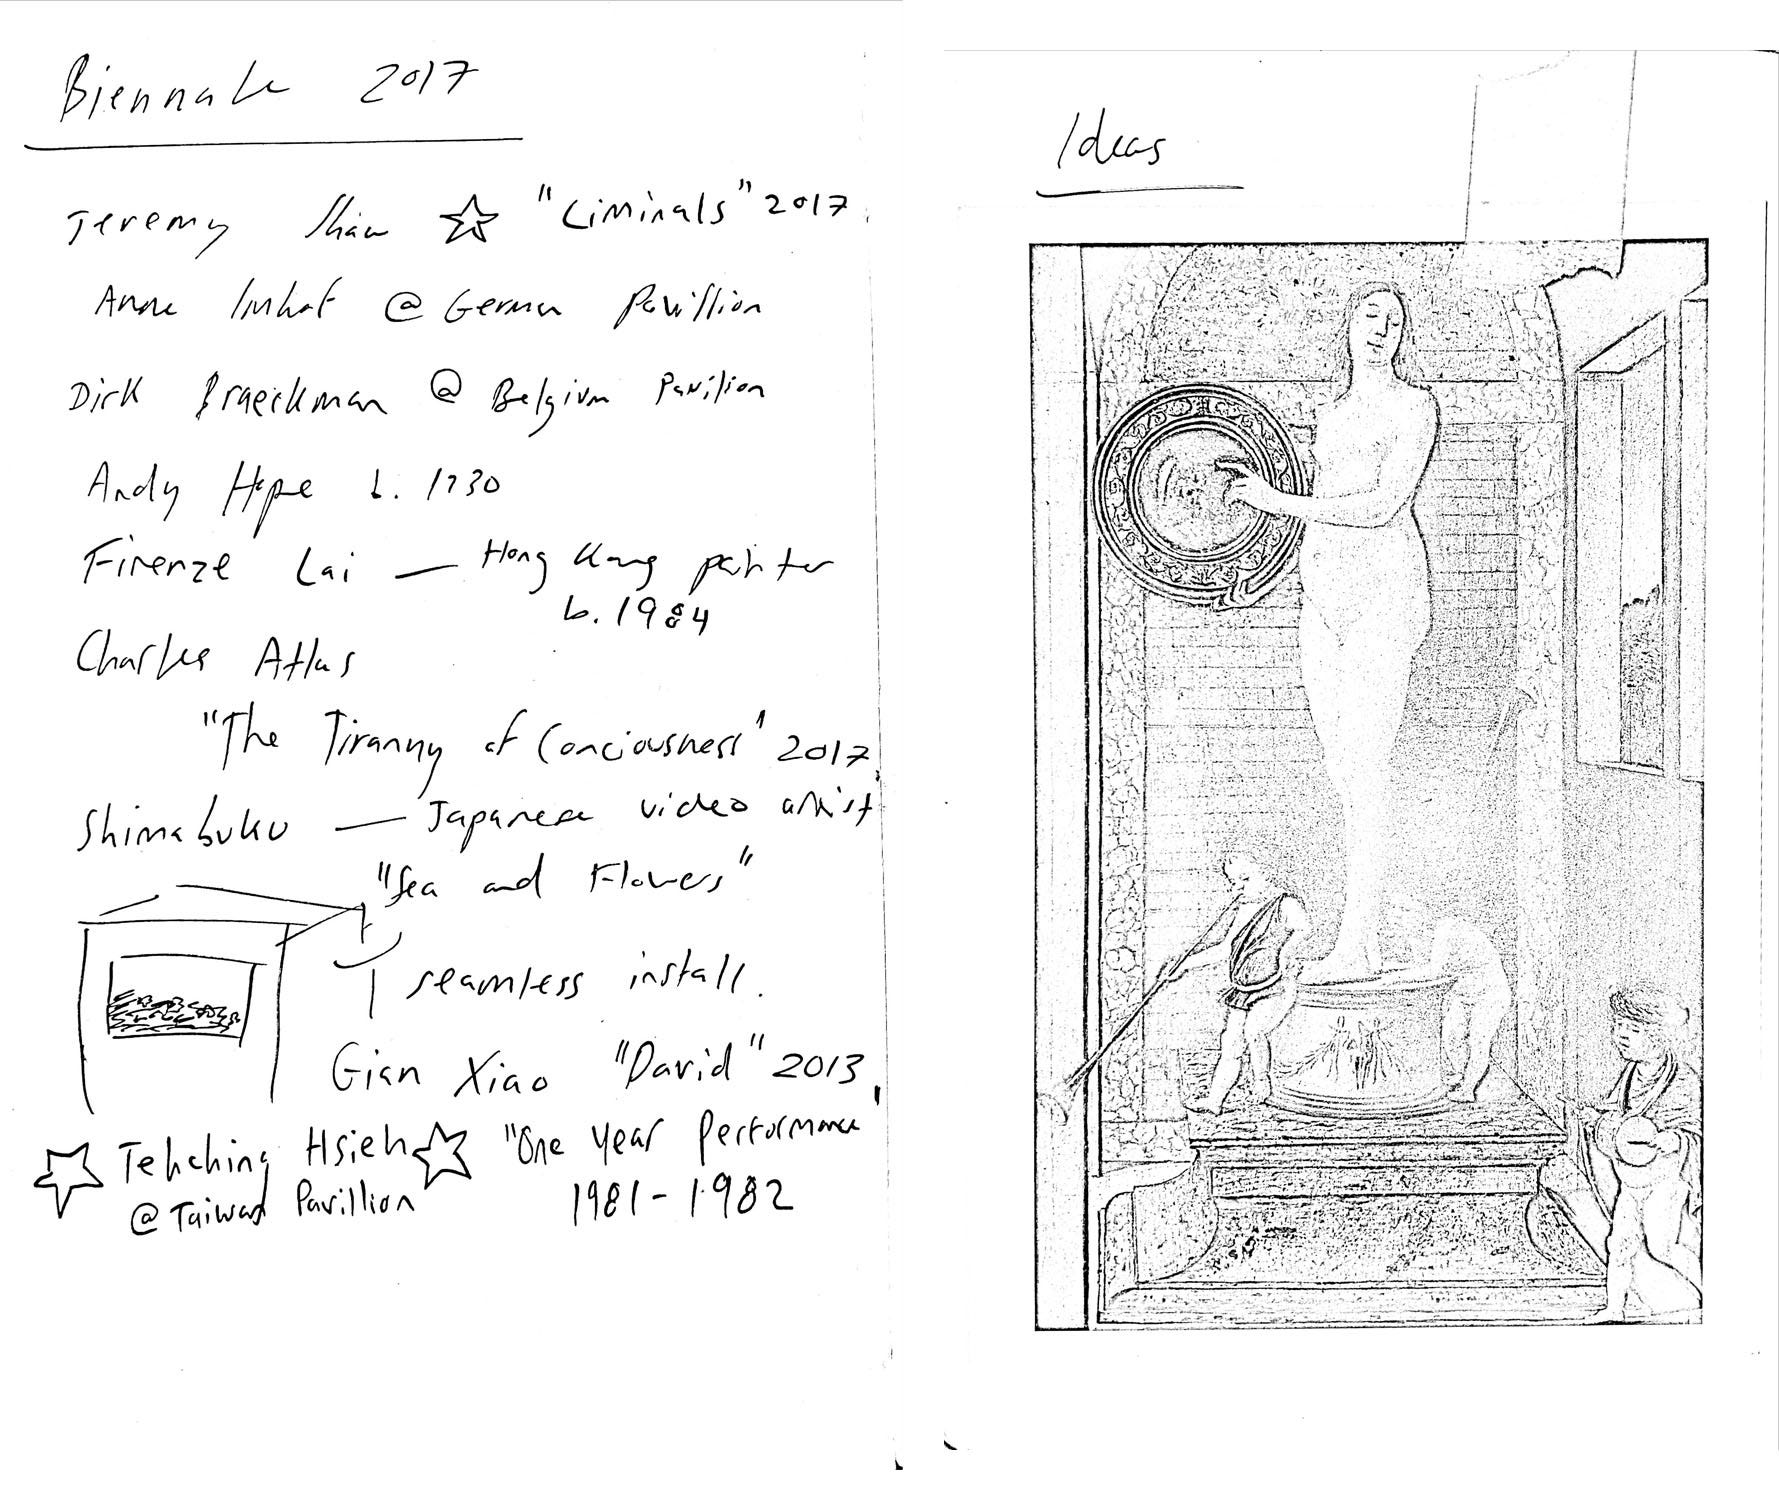 Biennale 2017
Jeremy Shaw ☆ "Liminals" 2017
Anne Imhof @ German Pavillion
Dirk Braeckman @ Belgium Pavilion
Andy Hope b. 1930
Firenze Lai — Hong Kong painter
b. 1984
Charles Atlas
"The Tiranny of Conciousness" 2017
Shimabuku — Japanese video artist
"Sea and Flowers"
seamless install.
Gian Xiao "David" 2013
☆ Tehching Hsieh ☆ "One Year Performance"
@ Taiwan Pavillion 1981-1982
Ideas